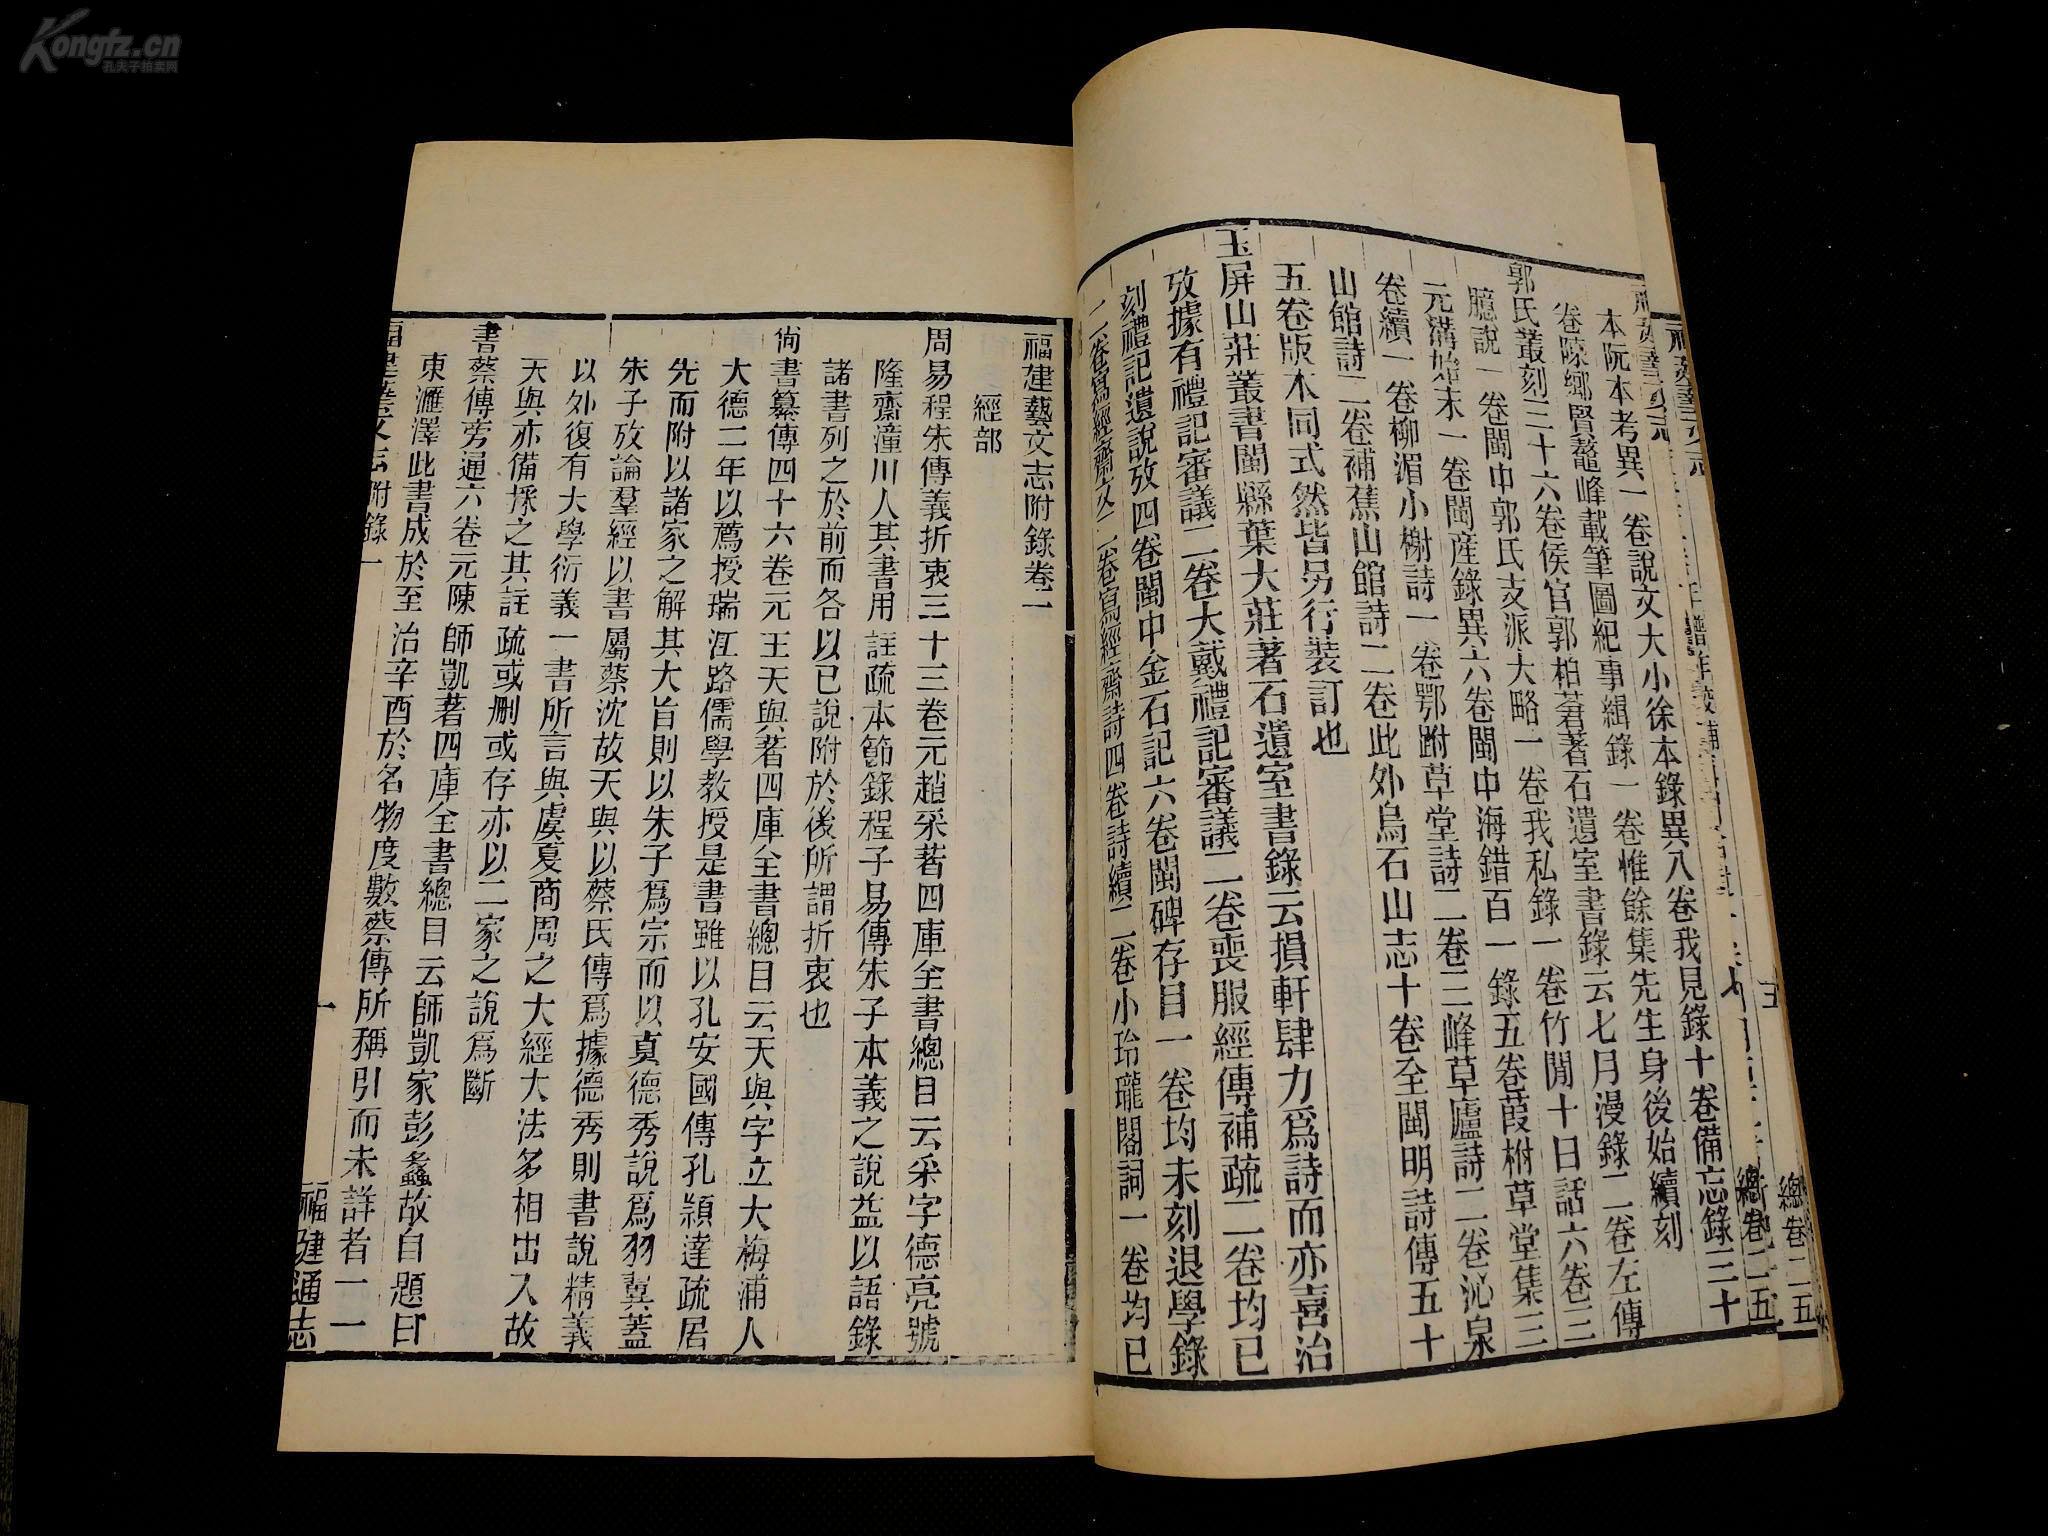 本阮本考異一卷說文大小徐本錄異八卷我見錄十卷備忘錄三十
卷陳鄉賢鼇峰載筆圖紀事緝錄一卷惟餘集先生身後始續刻
郭氏叢刻三十六卷侯官郭柏蒼著石遺室書錄云七月漫錄二卷左傳
臆說一卷閩中郭氏支派大略一卷我私錄一卷竹閒十日話六卷三
元溝始末一卷閩產錄異六卷閩中海錯百一錄五卷葭柎草堂集三
卷續一卷柳湄小榭詩一卷鄂跗草堂詩二卷三峰草廬詩二卷沁泉
山館詩二卷補蕉山館詩二卷此外烏石山志十卷全閩明詩傳五十
五卷版本同式然皆另行裝訂也
玉屏山莊叢書閩縣葉大莊著石遺室書錄云損軒肆力爲詩而亦喜治
攷據有禮記審議二卷大戴禮記審議二卷喪服經傳補疏二卷均已
刻禮記遺說攷四卷閩中金石記六卷閩碑存目一卷均未刻退學錄
二卷寫經齋文二卷寫經齋詩四卷詩續二卷小玲瓏閣詞一卷均已
福建藝文志附錄卷一
經部
周易程朱傳義折衷三十三卷元趙采著四庫全書總目云采字德亮號
隆齋潼川人其書用註疏本節錄程子易傳朱子本義之說益以語錄
諸書列之於前而各以已說附於後所謂折衷也
尚書纂傳四十六卷元王天與著四庫全書總目云天與字立大梅浦人
大德二年以薦授瑞江路儒學教授是書雖以孔安國傳孔穎達疏居
先而附以諸家之解其大旨則以朱子爲宗而以真德秀說爲羽翼蓋
朱子攷論羣經以書屬蔡沈故天與以蔡氏傳爲據德秀則書說精義
以外復有大學衍義一書所言與虞夏商周之大經大法多相出入故
天與亦備採之其註疏或删或存亦以二家之說爲斷
書蔡傳旁通六卷元陳師凱著四庫全書總目云師凱家彭蠡故自題曰
東滙澤此書成於至治辛酉於名物度數蔡傳所稱引而未詳者一一
福建藝文志附錄一
一
福建通志
總卷二五
總卷二五